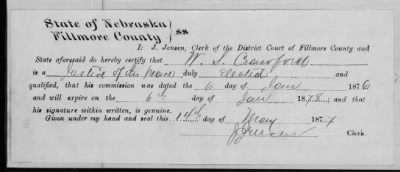 State of Nebraska
Fillmore County } ss
I: J. Jensen, Clerk of the District Court of Fillmore County and
State aforesaid do hereby certify that W. S. Crawford
is a Justice of the Peace duly Elected and
qualified, that his commission was dated the 6 day of Jany 1876
and will expire on the 6th day of Jany 1878; and that
his signature within written, is genuine.
Given under my hand and seal this 14th day of May 1877
J. Jensen Clerk.